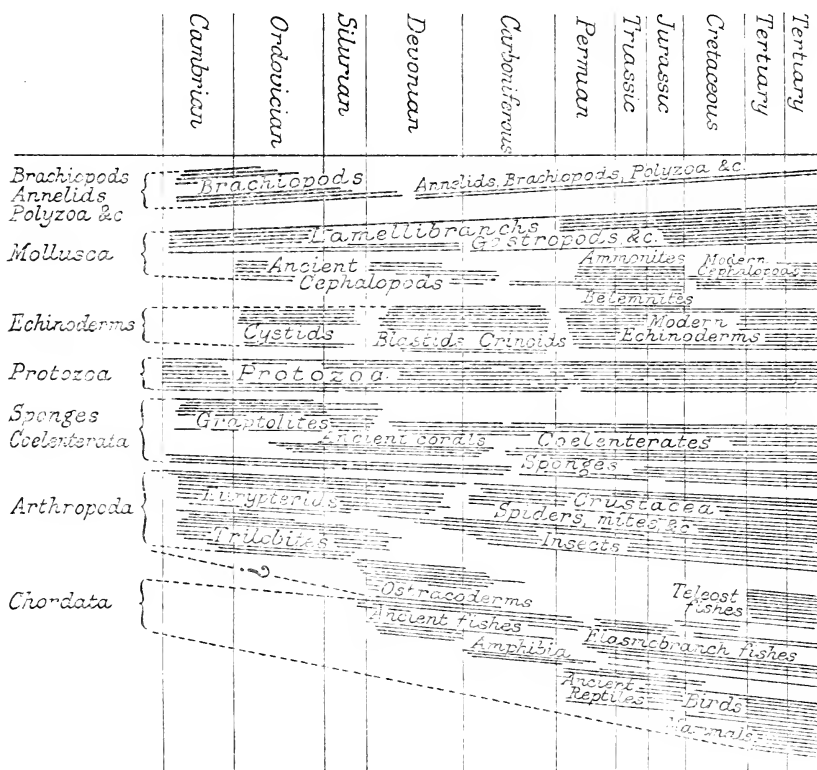 Cambrian
Ordovician
Silurian
Devonian
Carboniferous
Permian
Triassic
Jurassic
Cretaceous
Tertiary
Tertiary
Brachiopods
Annelids
Polyzoa &c
Brachiopods
Annelids, Brachiopods, Polyzoa &c.
Mollusca
Lamellibranchs
Gastropods, &c.
Ancient
Cephalopods
Ammonites
Belemnites
Modern
Cephalopods
Echinoderms
Cystids
Blastids
Crinoids
Modern
Echinoderms
Protozoa
Protozoa
Sponges
Coelenterata
Graptolites
Ancient corals
Coelenterates
Sponges
Arthropoda
Eurypterids
Trilobites
Crustacea
Spiders, mites, &c
Insects
?
Chordata
Ostracoderms
Ancient fishes
Amphibia
Teleost
fishes
Elasmobranch fishes
Ancient
Reptiles
Birds
Mammals